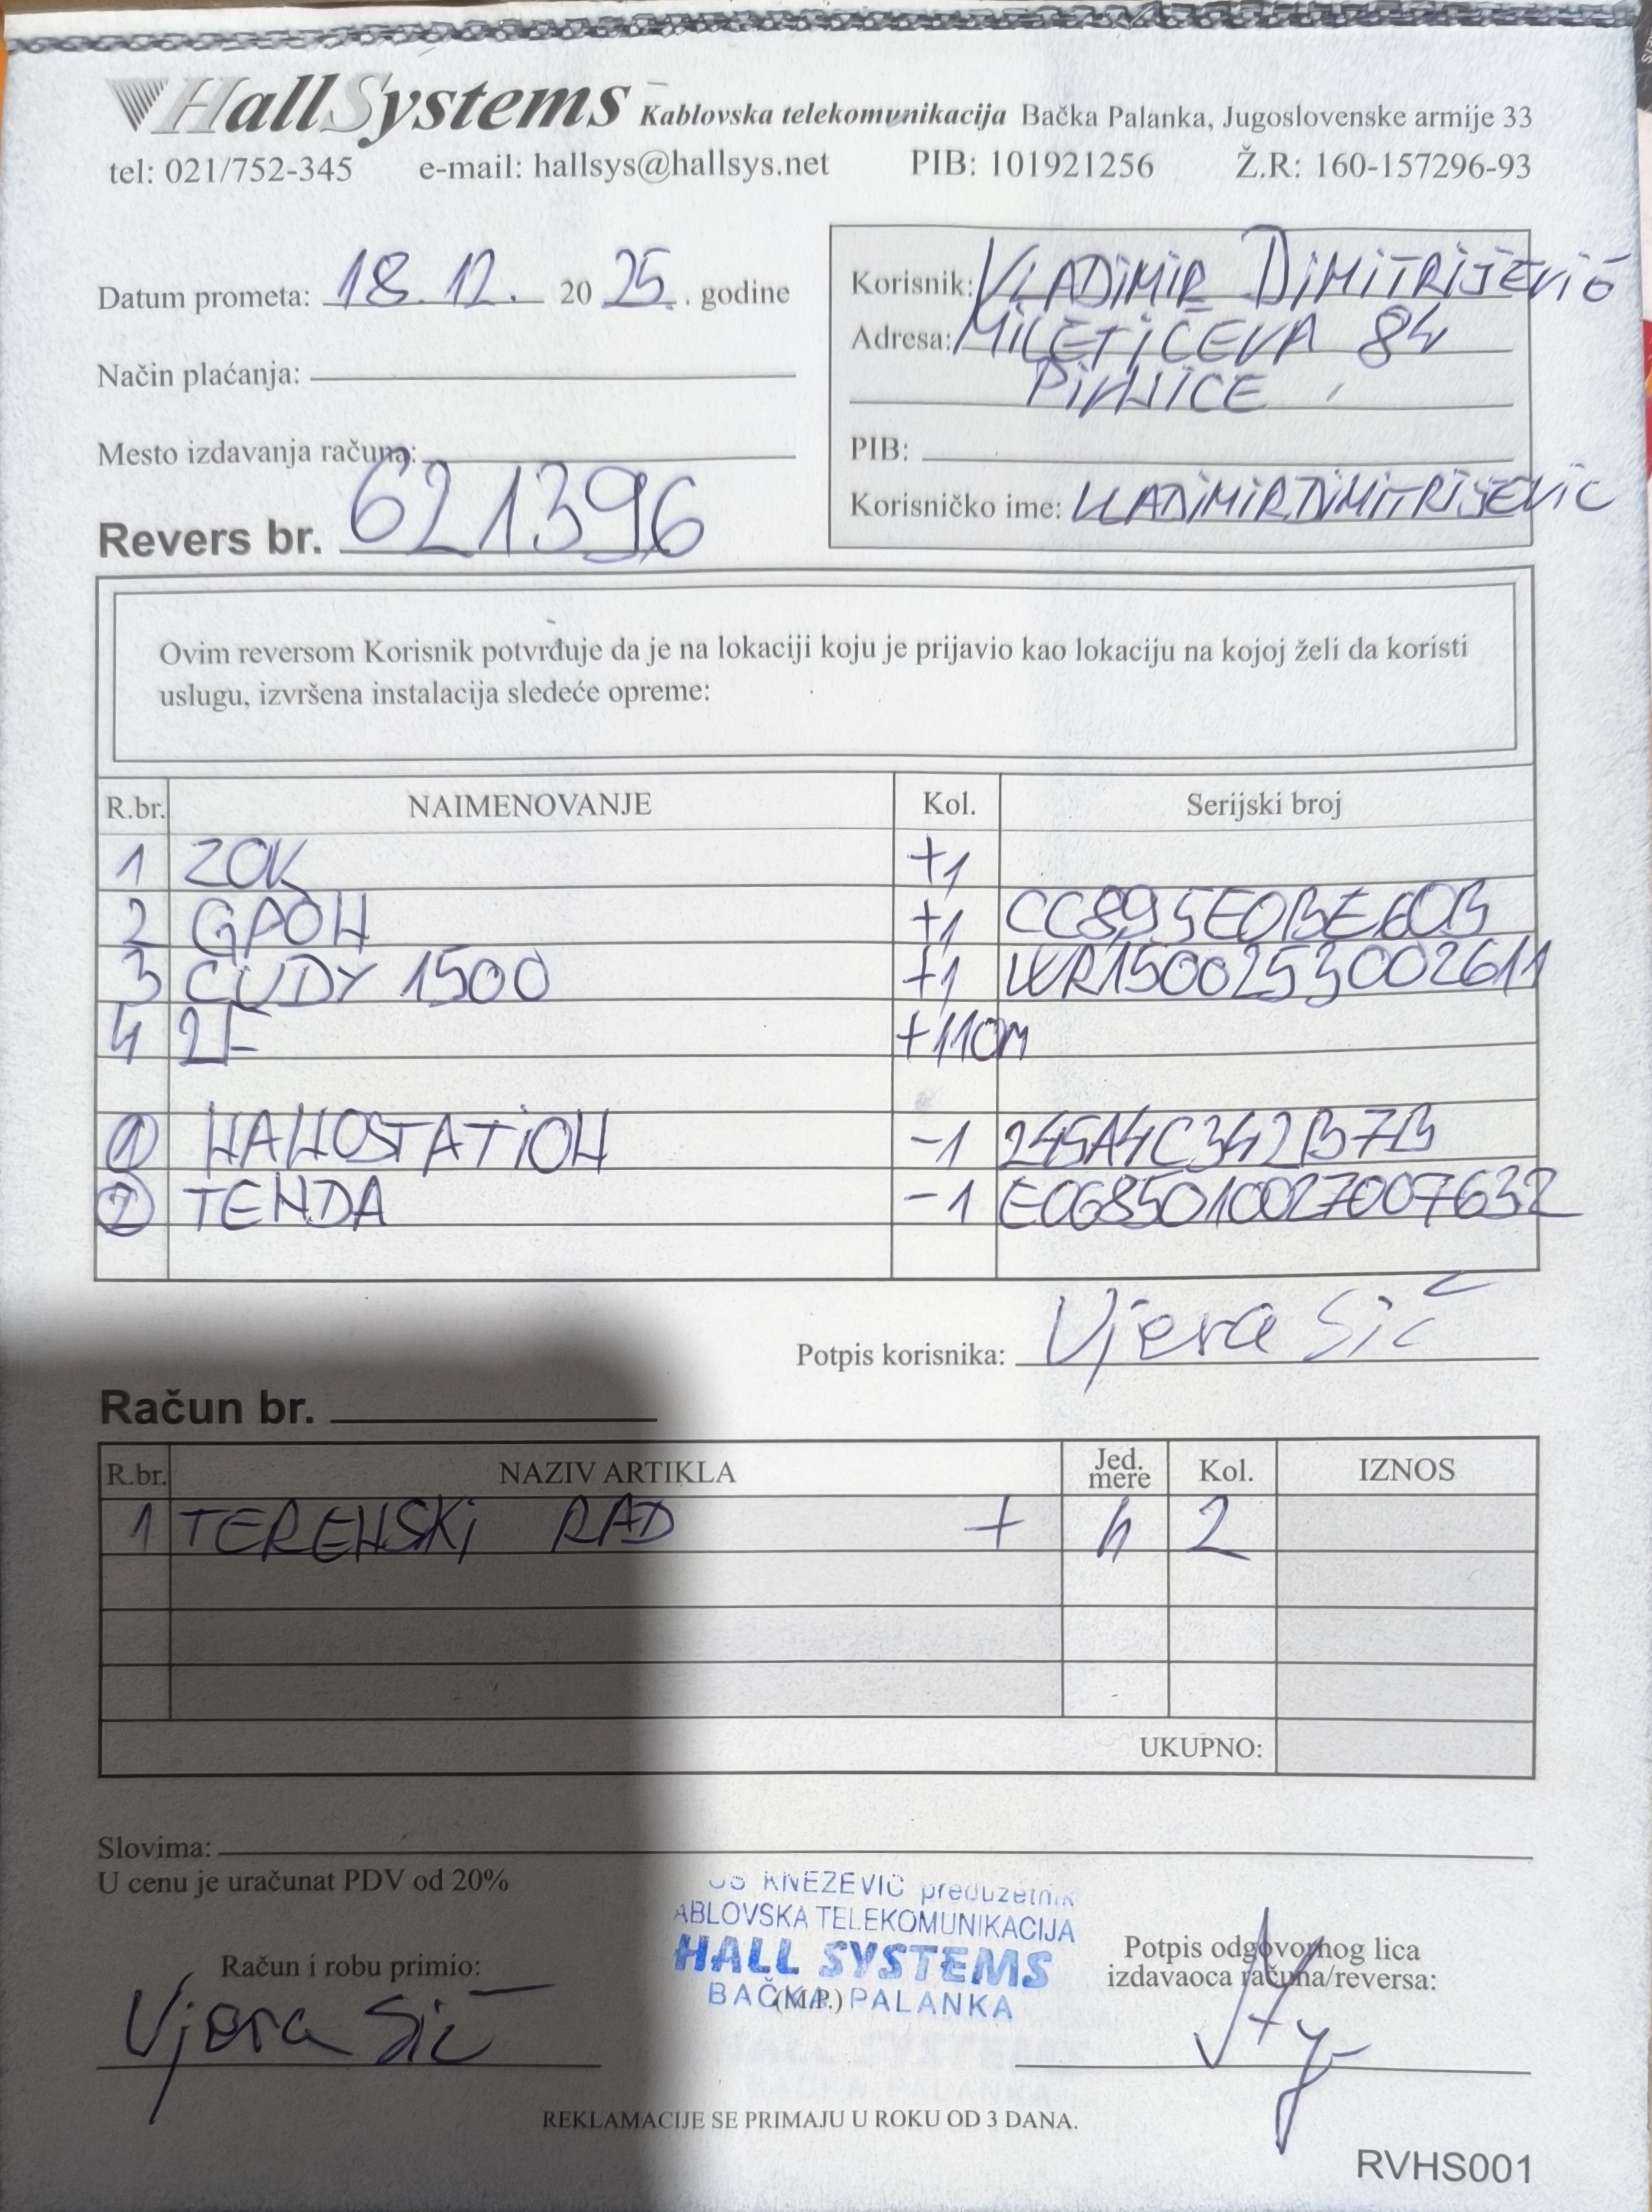 HallSystems Kablovska telekomunikacija Bačka Palanka, Jugoslovenske armije 33
tel: 021/752-345 e-mail: hallsys@hallsys.net PIB: 101921256 Ž.R: 160-157296-93
Datum prometa: 18.12. 20 25. godine
Način plaćanja:
Mesto izdavanja računa:
Revers br. 621396
Korisnik: VLADIMIR DIMITRIJEVIĆ
Adresa: MILETIĆEVA 84
PIVNICE
PIB:
Korisničko ime: VLADIMIR.DIMITRIJEVIC
Ovim reversom Korisnik potvrđuje da je na lokaciji koju je prijavio kao lokaciju na kojoj želi da koristi
uslugu, izvršena instalacija sledeće opreme:
R.br. NAIMENOVANJE Kol. Serijski broj
1 ZOK +1
2 GPON +1 CC895E0BE60B
3 CUDY 1500 +1 WR1500253002611
4 2F +110m
1 NANOSTATION -1 245A4C342B7B
2 TENDA -1 E0685010027007632
Potpis korisnika: Vjera Sič
Račun br.
R.br. NAZIV ARTIKLA Jed. mere Kol. IZNOS
1 TERENSKI RAD + h 2
UKUPNO:
Slovima:
U cenu je uračunat PDV od 20%
KNEZEVIĆ preduzetnik
ABLOVSKA TELEKOMUNIKACIJA
HALL SYSTEMS
BAČKA PALANKA
(M.P.)
Račun i robu primio:
Vjera Sič
Potpis odgovornog lica
izdavaoca računa/reversa:
REKLAMACIJE SE PRIMAJU U ROKU OD 3 DANA.
RVHS001